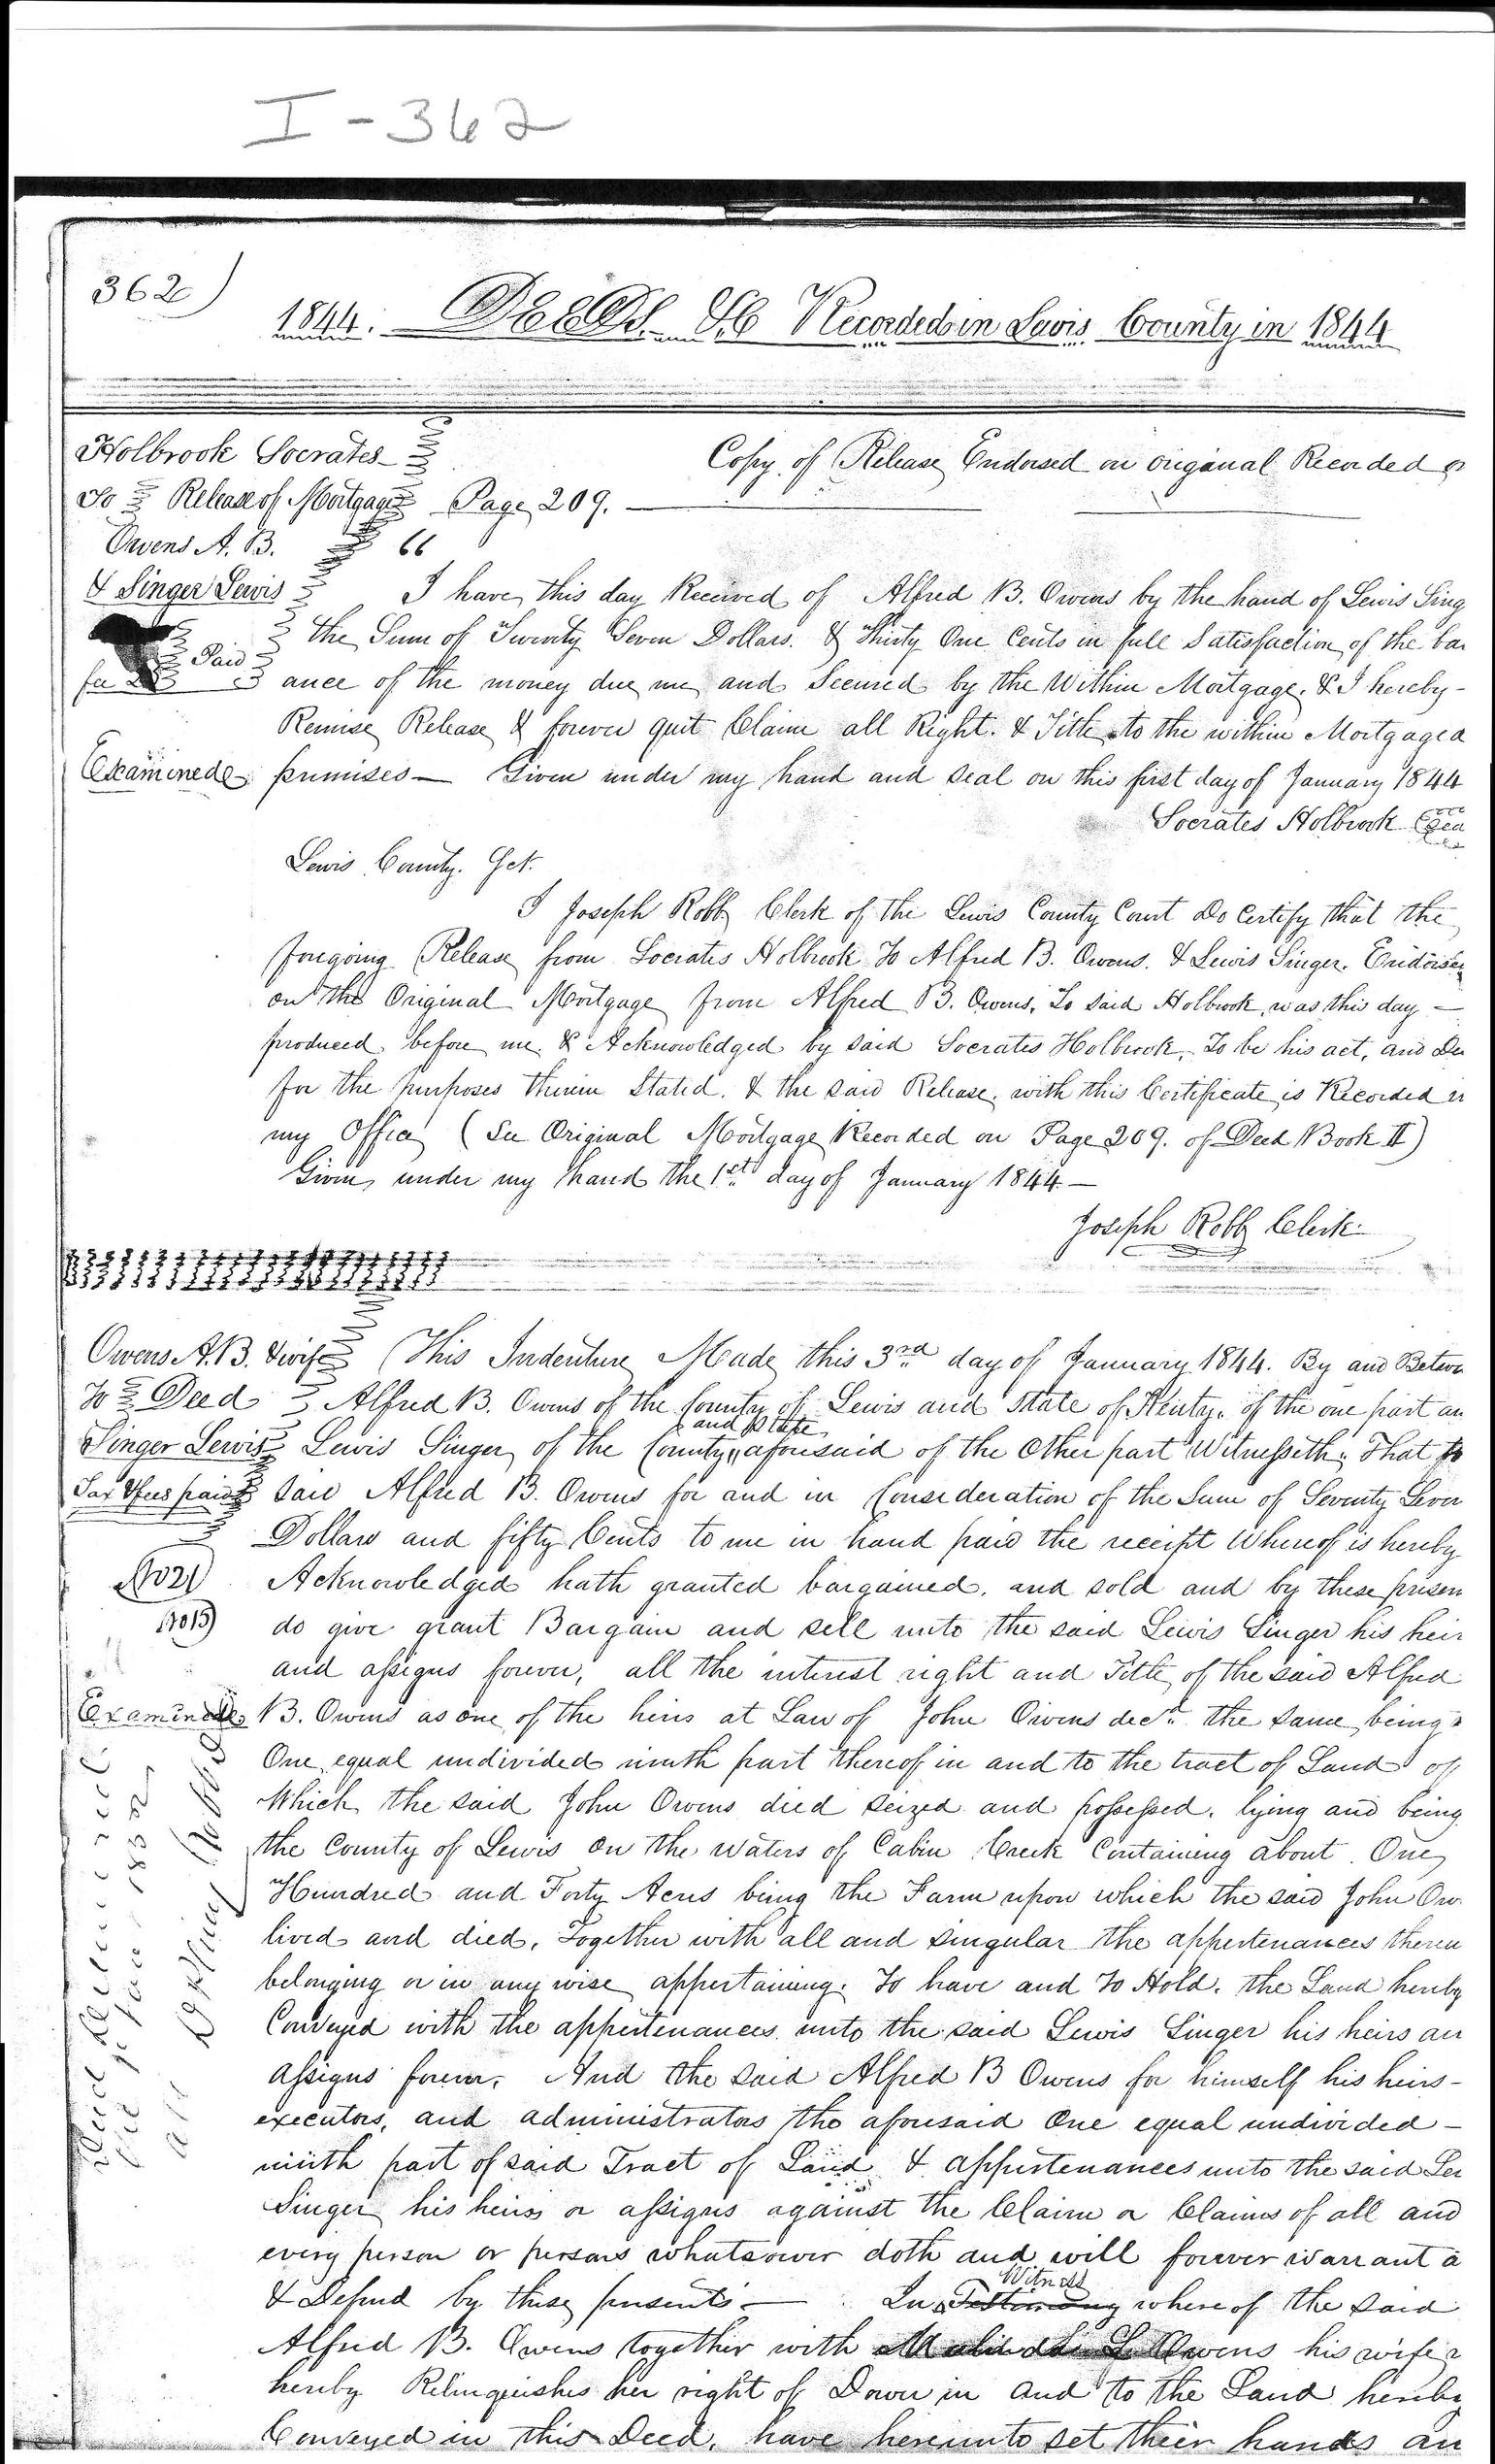 I - 362
362)
1844. Deeds &C Recorded in Lewis County in 1844
Holbrook Socrates
To Release of Mortgage
Owens A. B.
& Singer Lewis
Paid
fee
Examined
Copy of Release Endorsed on original Recorded
Page 209.
66
I have this day Received of Alfred B. Owens by the hand of Lewis Sing
the Sum of Twenty Seven Dollars. & Thirty One Cents in full Satisfaction of the bal
ance of the money due me and Secured by the Within Mortgage. & I hereby -
Remise Release & forever quit Claim all Right. & Title to the within Mortgaged
premises — Given under my hand and Seal on this first day of January 1844
Socrates Holbrook Sea
Lewis County. Sct.
I Joseph Robb Clerk of the Lewis County Court Do Certify that the
foregoing Release from Socrates Holbrook To Alfred B. Owens. & Lewis Singer. Endorsed
on the Original Mortgage from Alfred B. Owens, To Said Holbrook, was this day —
produced before me. & Acknowledged by Said Socrates Holbrook, To be his act, and De
for the purposes therein Stated. & the said Release, with this Certificate is Recorded in
my Office (See Original Mortgage Recorded on Page 209. of Deed Book II)
Given under my hand the 1st day of January 1844 —
Joseph Robb Clerk
Owens A. B. & wife
To Deed
Singer Lewis
Tax & fees paid
No 21
No 15
Examined
This Indenture Made this 3rd day of January 1844. By and Betwe
Alfred B. Owens of the County of Lewis and State of Kenty. of the one part an
and State
Lewis Singer of the County aforesaid of the Other part Witnesseth. That
said Alfred B. Owens for and in Consideration of the Sum of Seventy Seven
Dollars and fifty Cents to me in hand paid the receipt Whereof is hereby
Acknowledged hath granted bargained, and sold and by these presen
do give grant Bargain and sell unto the said Lewis Singer his heir
and assigns forever, all the interest right and Title of the said Alfred
B. Owens as one of the heirs at Law of John Owens decd. the same being
One equal undivided ninth part thereof in and to the tract of Land of
Which the said John Owens died seized and possessed. lying and being
the County of Lewis on the waters of Cabin Creek Containing about One
Hundred and Forty Acres being the Farm upon which the said John Ow
lived and died, Together with all and singular the appertenances thereu
belonging or in any wise appertaining. To have and To Hold. the Land hereby
Conveyed with the appertenances unto the said Lewis Singer his heirs an
assigns forever. And the said Alfred B Owens for himself his heirs -
executors, and administrators the aforesaid One equal undivided —
ninth part of said Tract of Land & appertenances unto the said Le
Singer his heirs or assigns against the Claim or Claims of all and
every person or persons whatsoever doth and will forever warrant a
Witness
& Defend by these presents — In Testimony whereof the said
Alfred B. Owens together with Malinda Owens his wife
hereby Relinquishes her right of Dower in and to the Land hereby
Conveyed in this Deed, have hereunto set their hands an